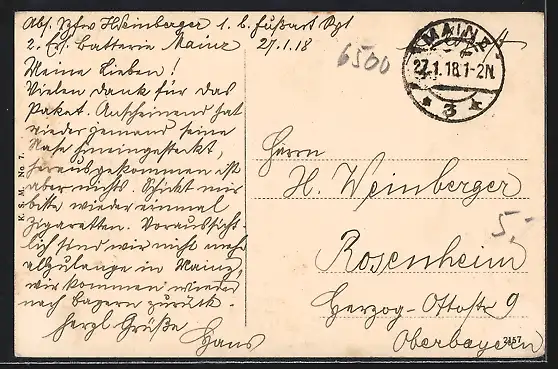 Abs. Vzfw H. Weinberger 1. b. Fußart. Rgt
2. Ers. Batterie Mainz 27.1.18
Meine Lieben!
Vielen Dank für das
Paket. Anscheinend hat
wieder jemand seine
Nase hineingesteckt,
herausgekommen ist
aber nichts. Schickt mir
bitte wieder einmal
Zigaretten. Voraussicht-
lich sind wir nicht mehr
allzulange in Mainz,
wir kommen wieder
nach Bayern zurück.
Herzl. Grüße
Hans
E. S. M. No 7.
6500
MAINZ
27.1.18.1-2N.
* 3 *
Herrn
H. Weinberger
5,-
Rosenheim
Herzog-Ottostr 9
Oberbayern